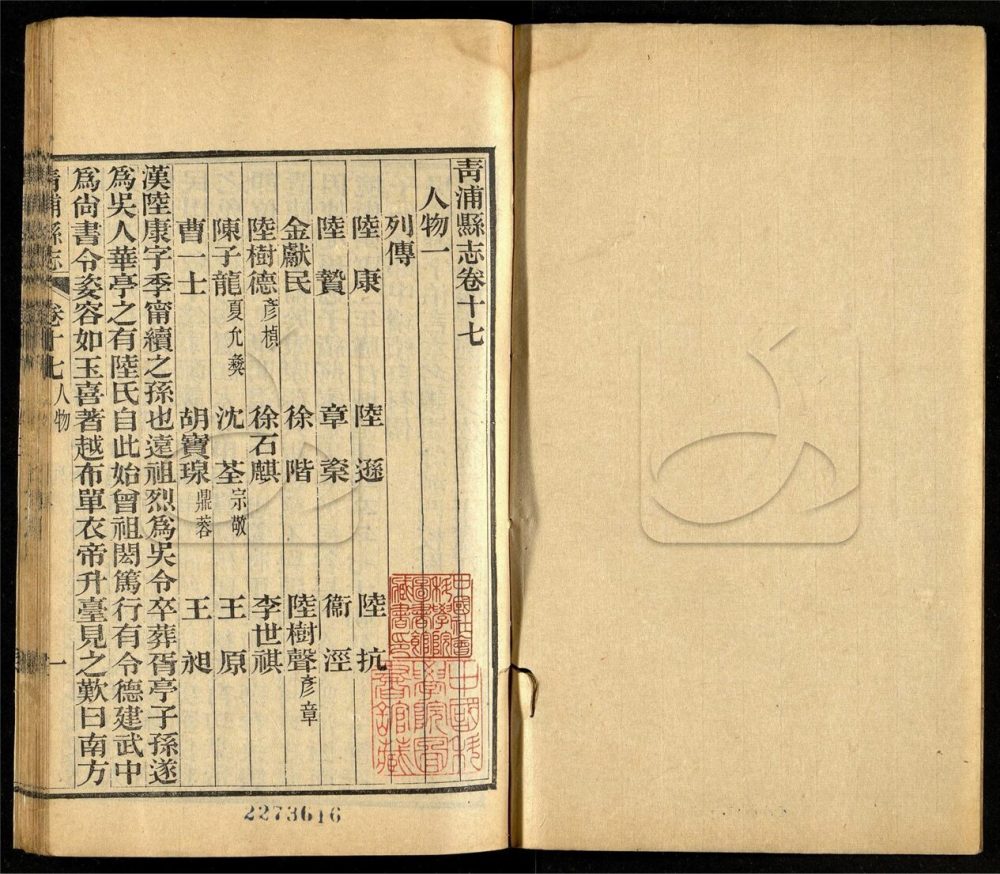 青浦縣志卷十七
人物一
列傳
陸康 陸遜 陸抗
陸贄 章楶 衞涇
金獻民 徐階 陸樹聲彥章
陸樹德彥楨 徐石麒 李世祺
陳子龍夏允彝 沈荃宗敬 王原
曹一士 胡寶瑔鼎蓉 王昶
漢陸康字季甯續之孫也遠祖烈爲吳令卒葬胥亭子孫遂
爲吳人華亭之有陸氏自此始曾祖閎篤行有令德建武中
爲尙書令姿容如玉喜著越布單衣帝升臺見之歎曰南方
青浦縣志 卷十七 人物 一
中國社會科學院圖書館藏書印
中國科學院圖書館藏
2273616